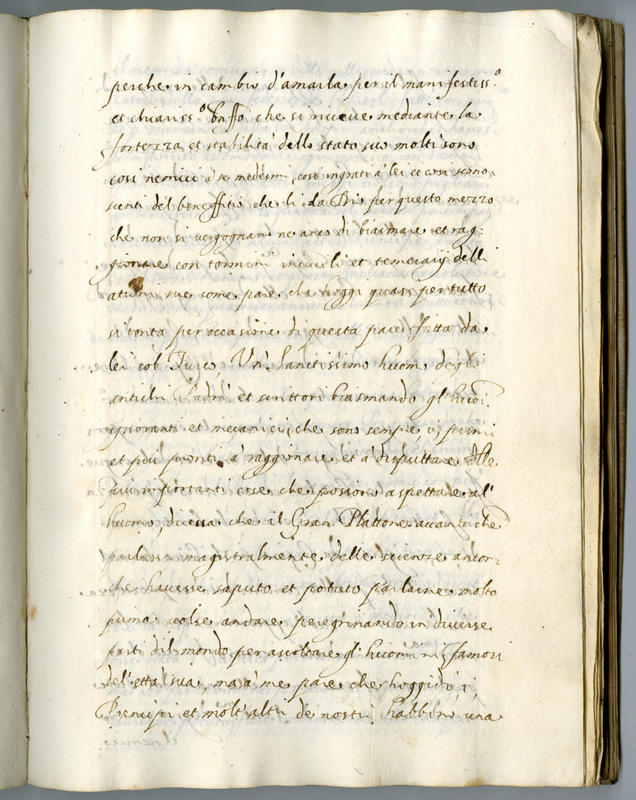 perche in cambio d'amarla per il manifestiss.o
et chiariss.o bnffo che si riceve mediante la
fortezza et stabilità dello stato suo molti sono
cosi nemici à se medesmi, cosi ingrati à lei et cosi scono
scenti del beneffitio che li da Dio per questo mezzo
che non si vergognano ne anco di biasmare et rag:
gionare con termini incivili et temerarij delli
ationi sue come pare che hoggi quasi per tutto
si tenta per occasione di questa pace fatta da
lei col Turco Un santissimo huom degli
antichi Padri et scrittori biasmando gl'huoi.
ignoranti et mecanici che sono sempre i primi
et più pronti à raggionare et à disputtare delle
più importanti cose che possono aspettare al'
huomo, diceva che il Gran Plattone avanti che
parlasse magistralmente delle scienze ancor:
che havesse saputo et potuto parlarne molto
prima volse andare peregrinando in diverse
parti dil mondo per ascoltare gl'huomini famosi
del'ettà sua, ma à me pare che hoggidi i
Prencipi et molt'altri de nostri habbino una